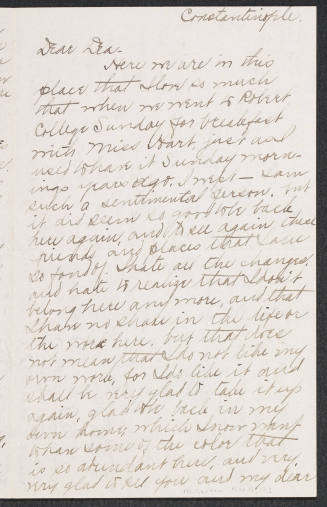 Constantinople.
Dear Dea-
Here we are in this
place that I love so much
that when we went to Robert
College Sunday for breakfast
with Miss Hart, just as I
used to have it Sunday morn-
ings years ago, I wept - I am
such a sentimental person, but
it did seem so good to be back
here again, and to see again these
friends and places that I am
so fond of. I hate all the changes,
and hate to realize that I don't
belong here any more, and that
I have no share in the life or
the work here. but that does
not mean that I do not like my
own work, for I do like it and
shall be very glad to take it up
again, glad to be back in my
own home, which I now want
to have some of the color that
is so abundant here, and very,
very glad to see you and my dear